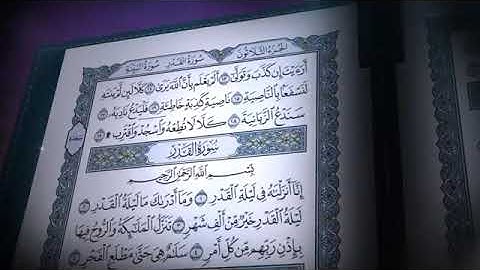 الجزء الثلاثون سورة القدر سورة البينة
أَرَءَيْتَ إِن كَذَّبَ وَتَوَلَّىٰ ١٣ أَلَمْ يَعْلَم بِأَنَّ ٱللَّهَ يَرَىٰ ١٤ كَلَّا لَئِن لَّمْ يَنتَهِ
لَنَسْفَعًۢا بِٱلنَّاصِيَةِ ١٥ نَاصِيَةٍ كَٰذِبَةٍ خَاطِئَةٍ ١٦ فَلْيَدْعُ نَادِيَهُۥ ١٧
سَنَدْعُ ٱلزَّبَانِيَةَ ١٨ كَلَّا لَا تُطِعْهُ وَٱسْجُدْ وَٱقْتَرِب ۩
سُورَةُ الْقَدْرِ
بِسْمِ ٱللَّهِ ٱلرَّحْمَٰنِ ٱلرَّحِيمِ
إِنَّآ أَنزَلْنَٰهُ فِى لَيْلَةِ ٱلْقَدْرِ ١ وَمَآ أَدْرَىٰكَ مَا لَيْلَةُ ٱلْقَدْرِ ٢
لَيْلَةُ ٱلْقَدْرِ خَيْرٌ مِّنْ أَلْفِ شَهْرٍ ٣ تَنَزَّلُ ٱلْمَلَٰٓئِكَةُ وَٱلرُّوحُ فِيهَا
بِإِذْنِ رَبِّهِم مِّن كُلِّ أَمْرٍ ٤ سَلَٰمٌ هِىَ حَتَّىٰ مَطْلَعِ ٱلْفَجْرِ